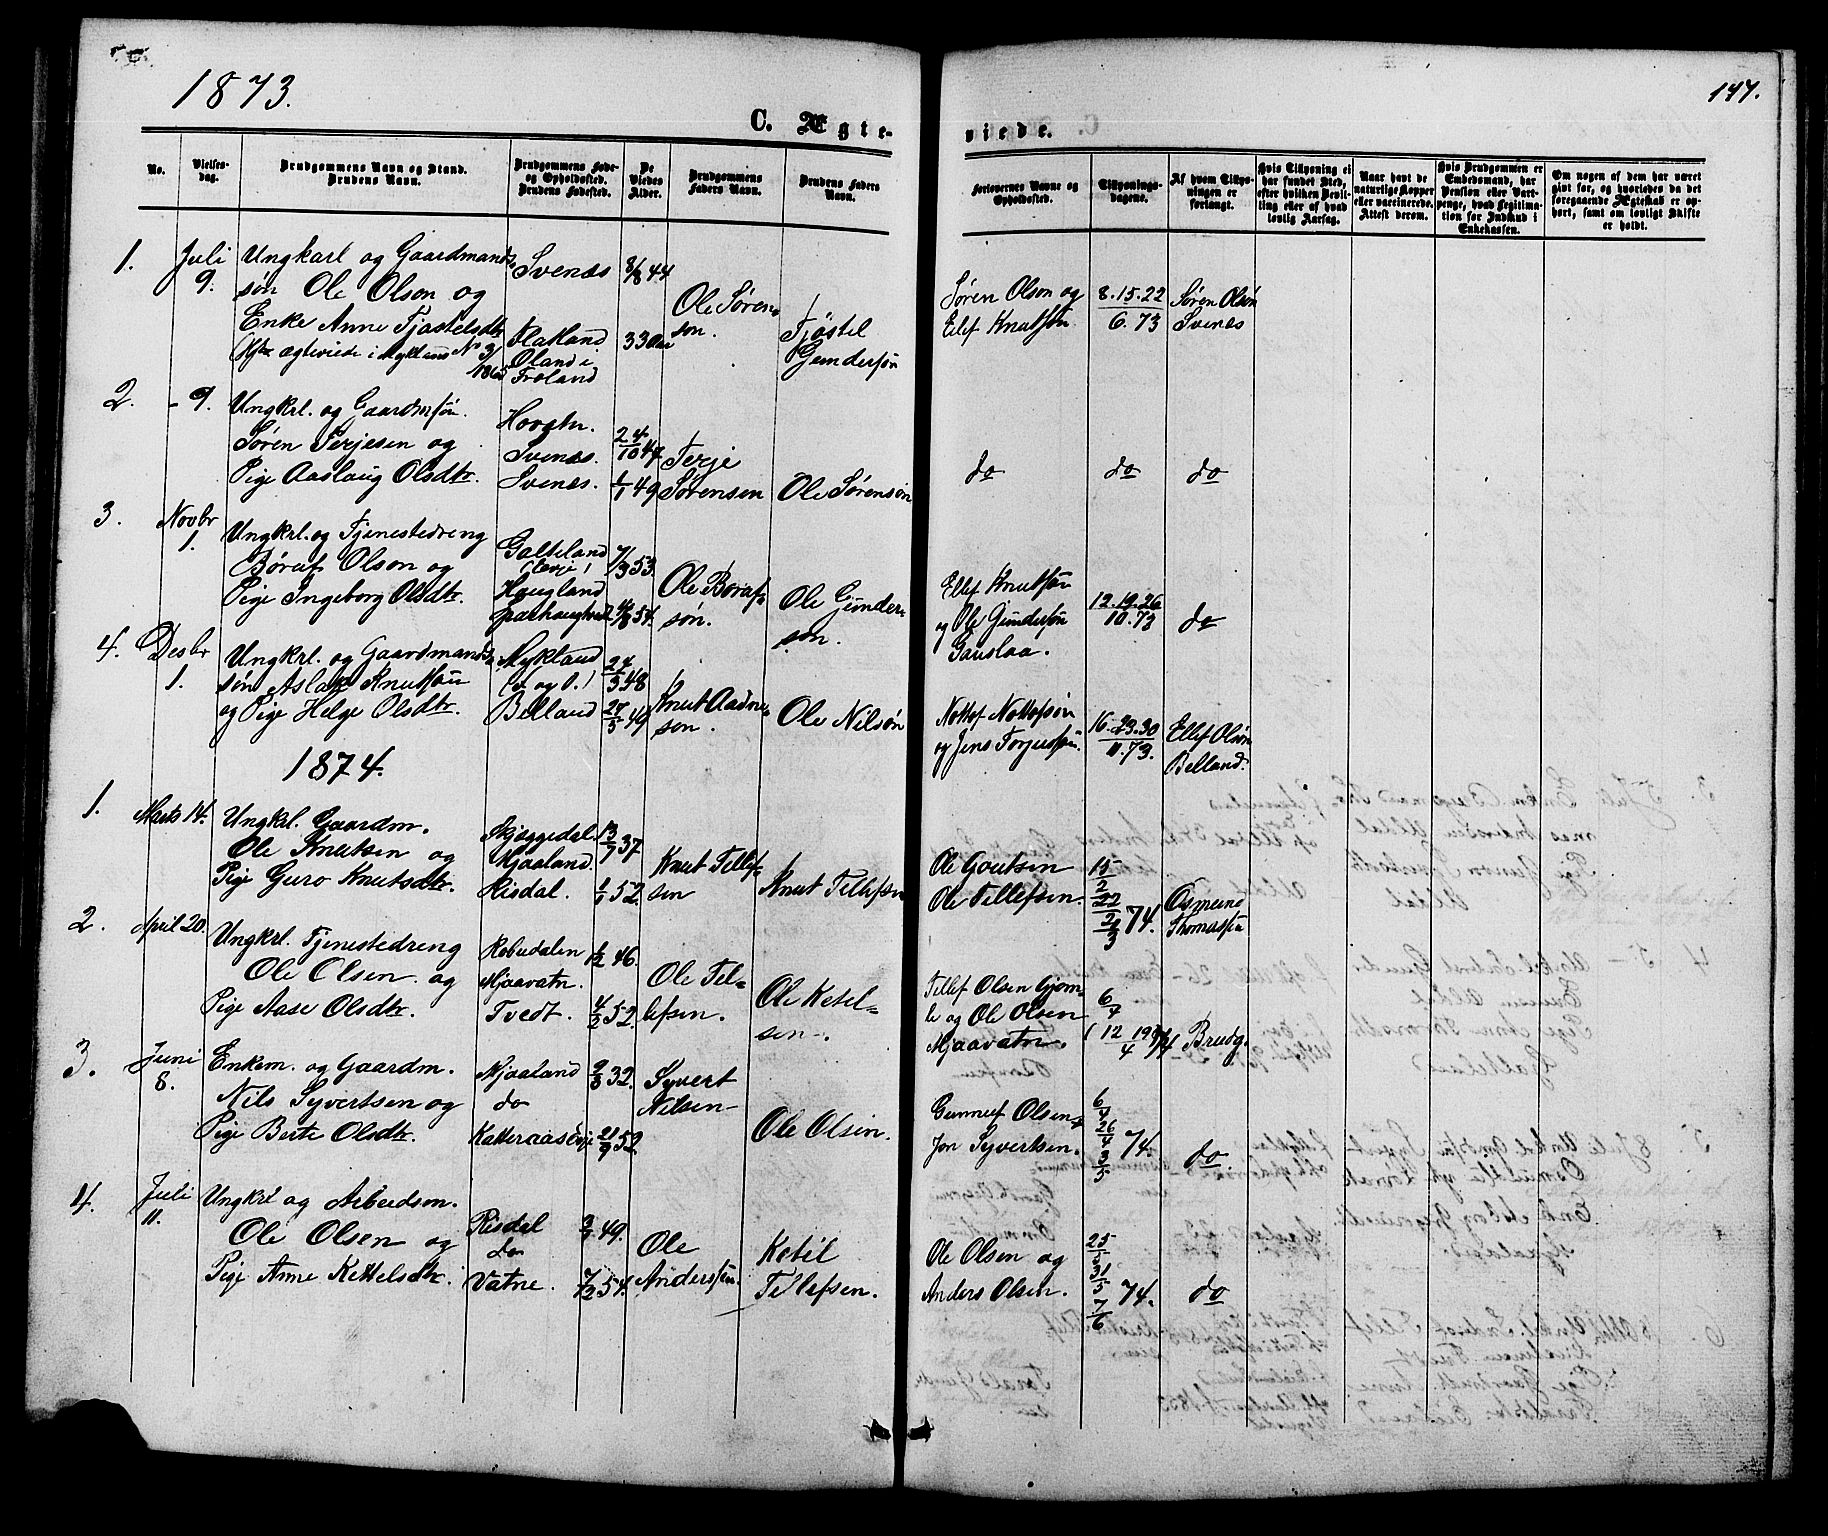 1873.
147.
C. Ægte-
viede.
No.
Vielses-
dag.
Brudgommens Navn og Stand.
Brudens Navn.
Brudgommens Føde-
og Opholdssted.
Brudens Fødested.
De
Viedes
Alder.
Brudgommens
Faders Navn.
Brudens Faders
Navn.
Forlovernes Navne og
Opholdssted.
Tillysnings-
dagene.
Af hvem Tillys-
ningen er
forlangt.
Hvis Tillysning ei
har fundet Sted,
efter hvilken Bevil-
ling eller af hvad
lovlig Aarsag.
Naar havt de
naturlige Kopper
eller vaccinerede.
Attest derom.
Hvis Brudgommen er
Embedsmand, har
Pension eller Vart-
penge, hvad Legitima-
tion for Indskud i
Enkekassen.
Om nogen af dem har været
givt før, og hvorledes da det
foregaaende Ægteskab er op-
hørt, samt om lovligt Skifte
er holdt.
1. Juli 9.
Ungkarl og Gaardmands-
søn Ole Olson og
Enke Anne Tjøstelsdtr
ægteviede i Mykland No 3/
Svenæs
Flatland
Oland i
Froland
8/8 44
33 Aar
Ole Søren-
son.
Tjøstel
Gundersøn
Søren Olson og
Ellef Knutsøn.
8.15.22
6.73
Søren Olsøn
Svenes
2. - 9.
Ungkrl. og Gaardmsøn.
Søren Terjesen og
Pige Aaslaug Olsdtr.
Svenæs.
Svenes.
24/10 44
1/1 49
Terje
Sørensen
Ole Sørensøn
do
do
do
3. Novbr 1.
Ungkrl. og Tjenestedreng
Børuf Olson og
Pige Ingeborg Olsdtr.
Galteland
(Evje)
Hougland
7/3 53.
8 54.
Ole Boruf-
søn.
Ole Gunder-
søn.
Ellef Knutsøn
og Ole Gundersøn
Gauslaa.
12.19.26
10.73
do
4. Desbr 1.
Ungkrl. og Gaardmands-
søn Aslak Knutsøn
og Pige Helge Olsdtr.
Mykland
(F. og O.)
Belland
24/5 48
27/5 49
Knut Aadne-
sen.
Ole Nilsøn
Nottof Nottofsøn
og Jens Torjussøn.
16.23.30
11.73.
Ellef Olsøn
Belland.
1874.
1. Marts 14.
Ungkrl. Gaardm.
Ole Knutsen og
Pige Guro Knutsdtr.
Skjeggedal.
Mjaaland.
Risdal.
13/7 37
1/1 52.
Knut Tellef-
sen
Knut Tellefsen
Ole Goutsen
Ole Tellefsen.
15/2
22/2
2/3 74.
Osmund
Thomassøn
2. April 20.
Ungkrl. Tjenestedreng
Ole Olsen. og
Pige Aase Olsdtr.
Mjaavatn.
Tvedt.
1/2 46.
4/2 52.
Ole Tel-
lefsen.
Ole Ketel-
sen.
Tellef Olsen Gjøm-
le og Ole Olsen
Mjaavatn.
6/4
(12 19/4
Brudg.
3. Juni 8.
Enkem. og Gaardm.
Nils Syvertsen og
Pige Berte Olsdtr.
Mjaaland
do
Katteraas Evje
9/8 32.
21/9 52.
Syvert
Nilsen
Ole Olsen.
Gunnuf Olsen
Jon Syvertsen.
26/4
3/5
74.
do.
4. Juli 11.
Ungkrl og Arbeidsm.
Ole Olsen og
Pige Anne Kettelsdtr.
Risdal
do
Vatne.
49.
7/2 54.
Ole
Anderssøn.
Ketil
Tellefsen.
Ole Olsen og
Anders Olsen.
25/5
31/5
7/6
74.
do